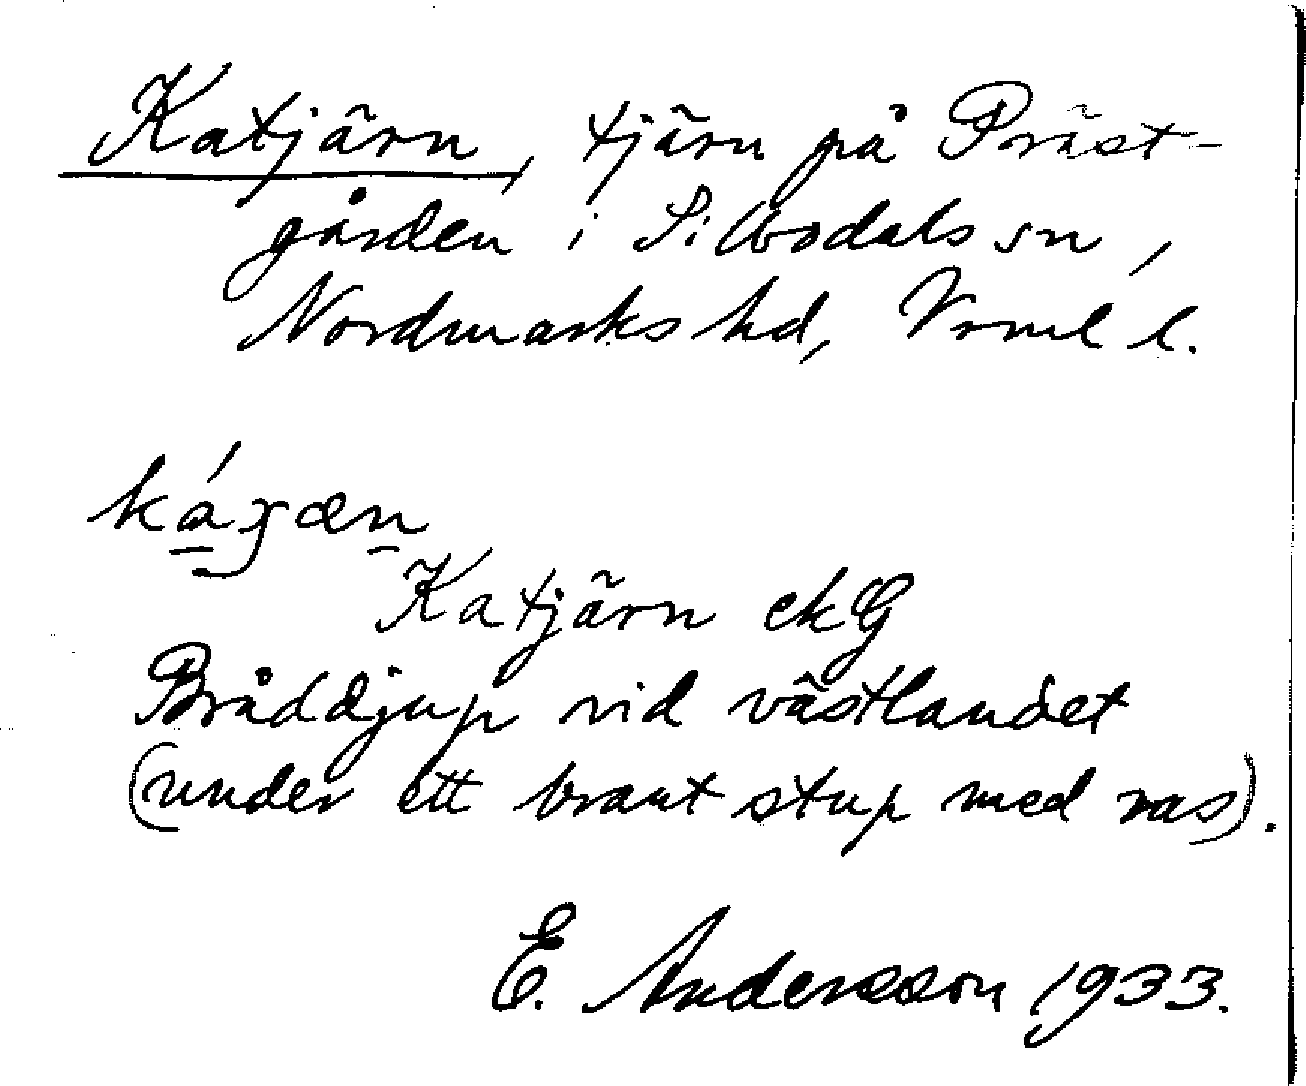 Katjärn, tjärn på Präst-
gården i Silbodals sn,
Nordmarks hd, Vrml l.
Katjärn ekG
Bråddjup vid västlandet
(under ett brant stup med ras).
E. Andersson 1933.